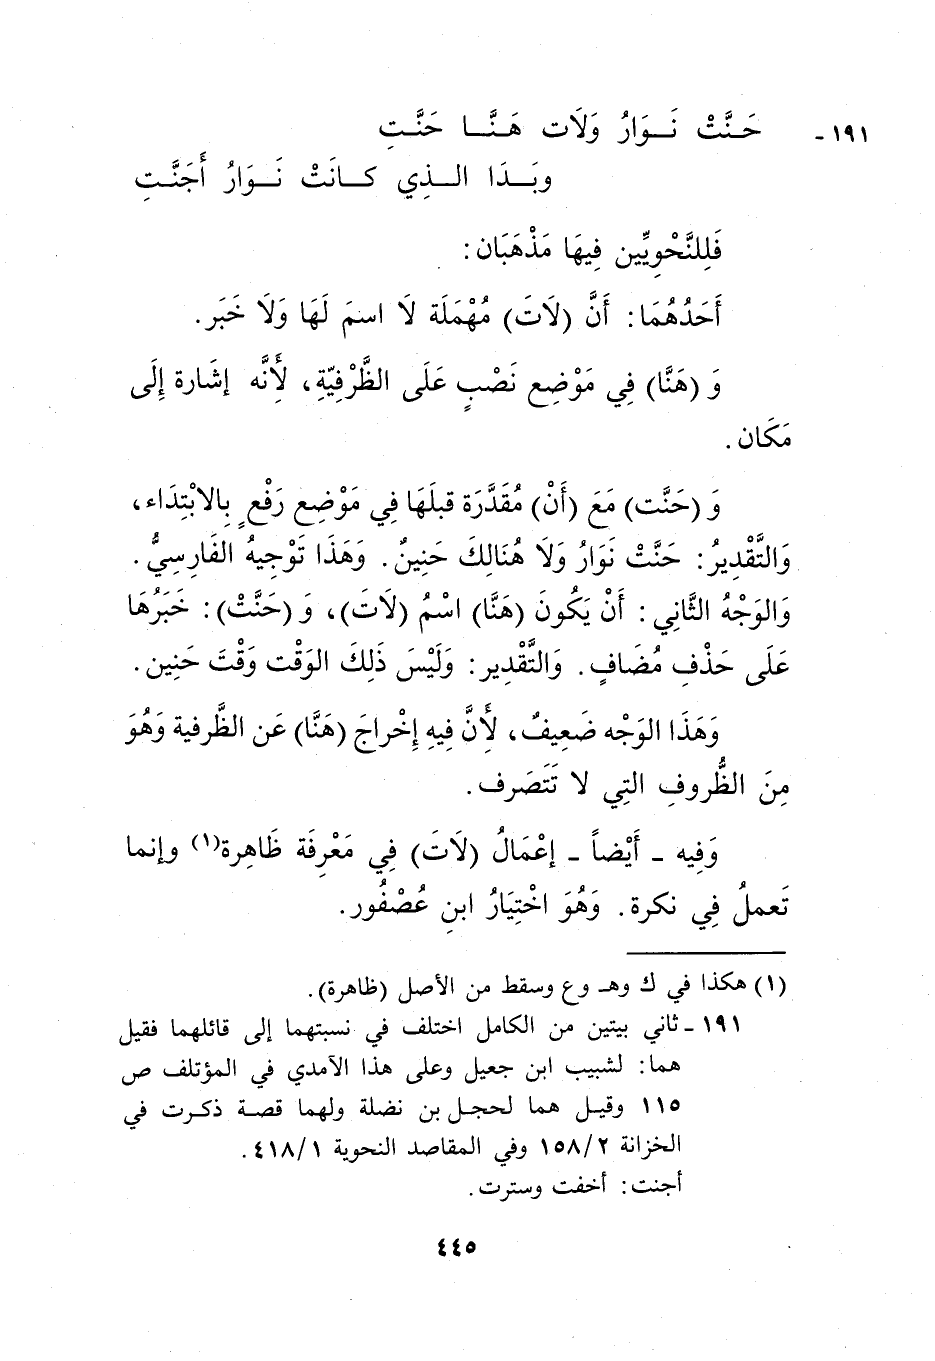 ١٩١ - حَنَّتْ نَوَارُ وَلَات هَنَّا حَنَّتِ
وبَدَا الذِي كَانَتْ نَوَارُ أَجَنَّتِ
فَلِلنَّحْوِيِّين فِيهَا مَذْهَبَان:
أَحَدُهُمَا: أَنَّ (لَاتَ) مُهْمَلَة لَا اسمَ لَهَا وَلَا خَبَر.
وَ (هَنَّا) فِي مَوْضِع نَصْبٍ عَلَى الظَّرْفِيّةِ، لِأَنَّه إشَارة إِلَى
مَكَان.
وَ (حَنَّت) مَعَ (أَنْ) مُقَدَّرَة قبلَهَا فِي مَوْضِع رَفْعٍ بِالابْتِدَاء،
وَالتَّقْدِيرُ: حَنَّتْ نَوَارُ وَلَا هُنَالِكَ حَنِينٌ. وَهَذَا تَوْجِيهُ الفَارِسِيُّ.
وَالوَجْهُ الثَّانِي: أَنْ يَكُونَ (هَنَّا) اسْمُ (لَاتَ)، وَ (حَنَّتْ): خَبَرُهَا
عَلَى حَذْفِ مُضَافٍ. وَالتَّقْدِير: وَلَيْسَ ذَلِكَ الوَقْت وَقْتَ حَنِين.
وَهَذَا الوَجْه ضَعِيفٌ، لِأَنَّ فِيهِ إِخْراجَ (هَنَّا) عَن الظَّرفية وَهُوَ
مِنَ الظُّروفِ التِي لا تَتَصَرف.
وَفِيه - أَيْضاً - إعْمَالُ (لَاتَ) فِي مَعْرِفَة ظَاهِرة(١) وإنما
تَعملُ فِي نكرة. وَهُوَ اخْتِيَارُ ابنِ عُصْفُور.
(١) هكذا في ك وهـ وع وسقط من الأصل (ظاهرة).
١٩١ - ثاني بيتين من الكامل اختلف في نسبتهما إلى قائلهما فقيل
هما: لشبيب ابن جعيل وعلى هذا الآمدي في المؤتلف ص
١١٥ وقيل هما لحجل بن نضلة ولهما قصة ذكرت في
الخزانة ١٥٨/٢ وفي المقاصد النحوية ٤١٨/١.
أجنت: أخفت وسترت.
٤٤٥